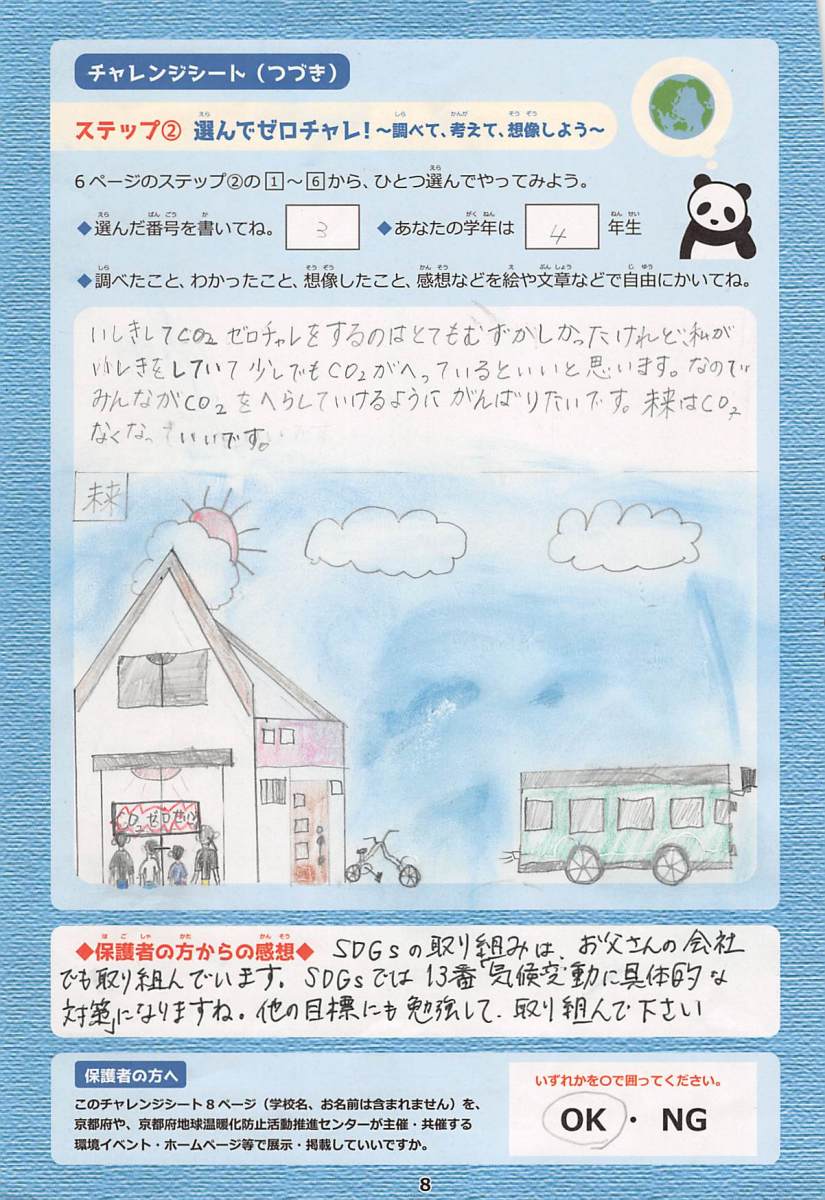 チャレンジシート（つづき）
ステップ② 選んでゼロチャレ！～調べて、考えて、想像しよう～
6ページのステップ②の1～6から、ひとつ選んでやってみよう。
◆選んだ番号を書いてね。 3 ◆あなたの学年は 4 年生
◆調べたこと、わかったこと、想像したこと、感想などを絵や文章などで自由にかいてね。
いしきしてCO2ゼロチャレをするのはとてもむずかしかったけれど、私が
いしきをしていて少しでもCO2がへっているといいと思います。なので
みんながCO2をへらしていけるようにがんばりたいです。未来はCO2
なくなっ いいです。
未来
CO2ゼロせいかつ
◆保護者の方からの感想◆ SDGsの取り組みは、お父さんの会社
でも取り組んでいます。SDGsでは13番「気候変動に具体的な
対策」になりますね。他の目標にも勉強して、取り組んで下さい
保護者の方へ
このチャレンジシート8ページ（学校名、お名前は含まれません）を、
京都府や、京都府地球温暖化防止活動推進センターが主催・共催する
環境イベント・ホームページ等で展示・掲載していいですか。
いずれかを○で囲ってください。
OK・NG
8